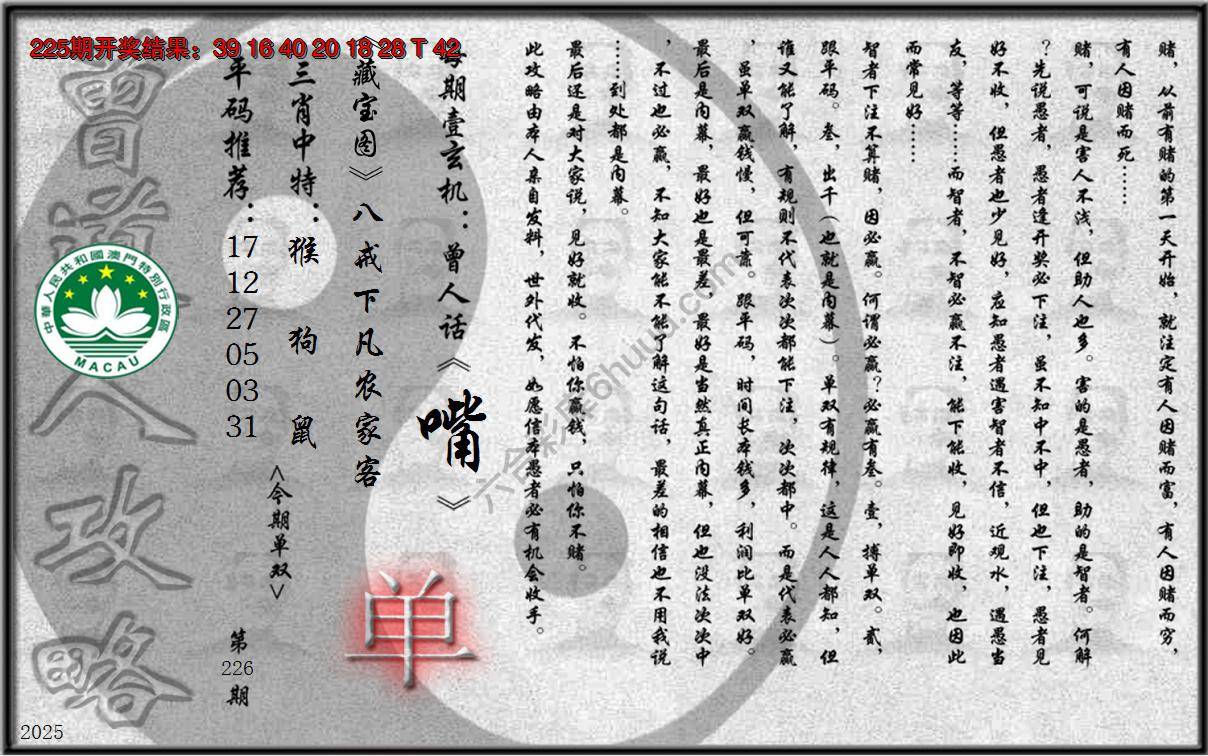 225期开奖结果：39 16 40 20 18 28 T 42
赌，从前有赌的第一天开始，就注定有人因赌而富，有人因赌而穷，
有人因赌而死……
赌，可说是害人不浅，但助人也多。害的是愚者，助的是智者。何解
？先说愚者，愚者逢开奖必下注，虽不知中不中，但也下注，愚者见
好不收，但愚者也少见好，应知愚者遇害智者不信，近观水，遇愚当
友，等等……而智者，不智必赢不注，能下能收，见好即收，也因此
而常见好……
智者下注不算赌，因必赢。何谓必赢？必赢有叁。壹，搏单双。贰，
跟平码。叁，出千（也就是内幕）。单双有规律，这是人人都知，但
谁又能了解，有规则不代表次次都能下注，次次都中。而是代表必赢
，虽单双赢钱慢，但可靠。跟平码，时间长本钱多，利润比单双好。
最后是内幕，最好也是最差，最好是当然真正内幕，但也没法次次中
，不过也必赢，不知大家能不能了解这句话，最差的相信也不用我说
……到处都是内幕。
最后还是对大家说，见好就收。不怕你赢钱，只怕你不赌。
此攻略由本人亲自发料，世外代发，如愿信本愚者必有机会收手。
每期壹玄机：曾人话《嘴》
《藏宝图》八戒下凡农家客
三肖中特：猴 狗 鼠
<今期单双>
单
平码推荐：17 12 27 05 03 31
第226期
曾道人攻略
中華人民共和國澳門特別行政區
MACAU
六合彩库6huuu.com
2025